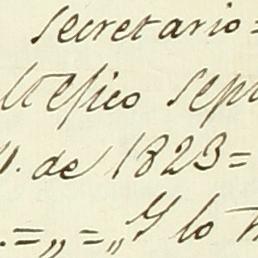 secretario=
ltepico sept
de 1823=
.=„=„Y lo t